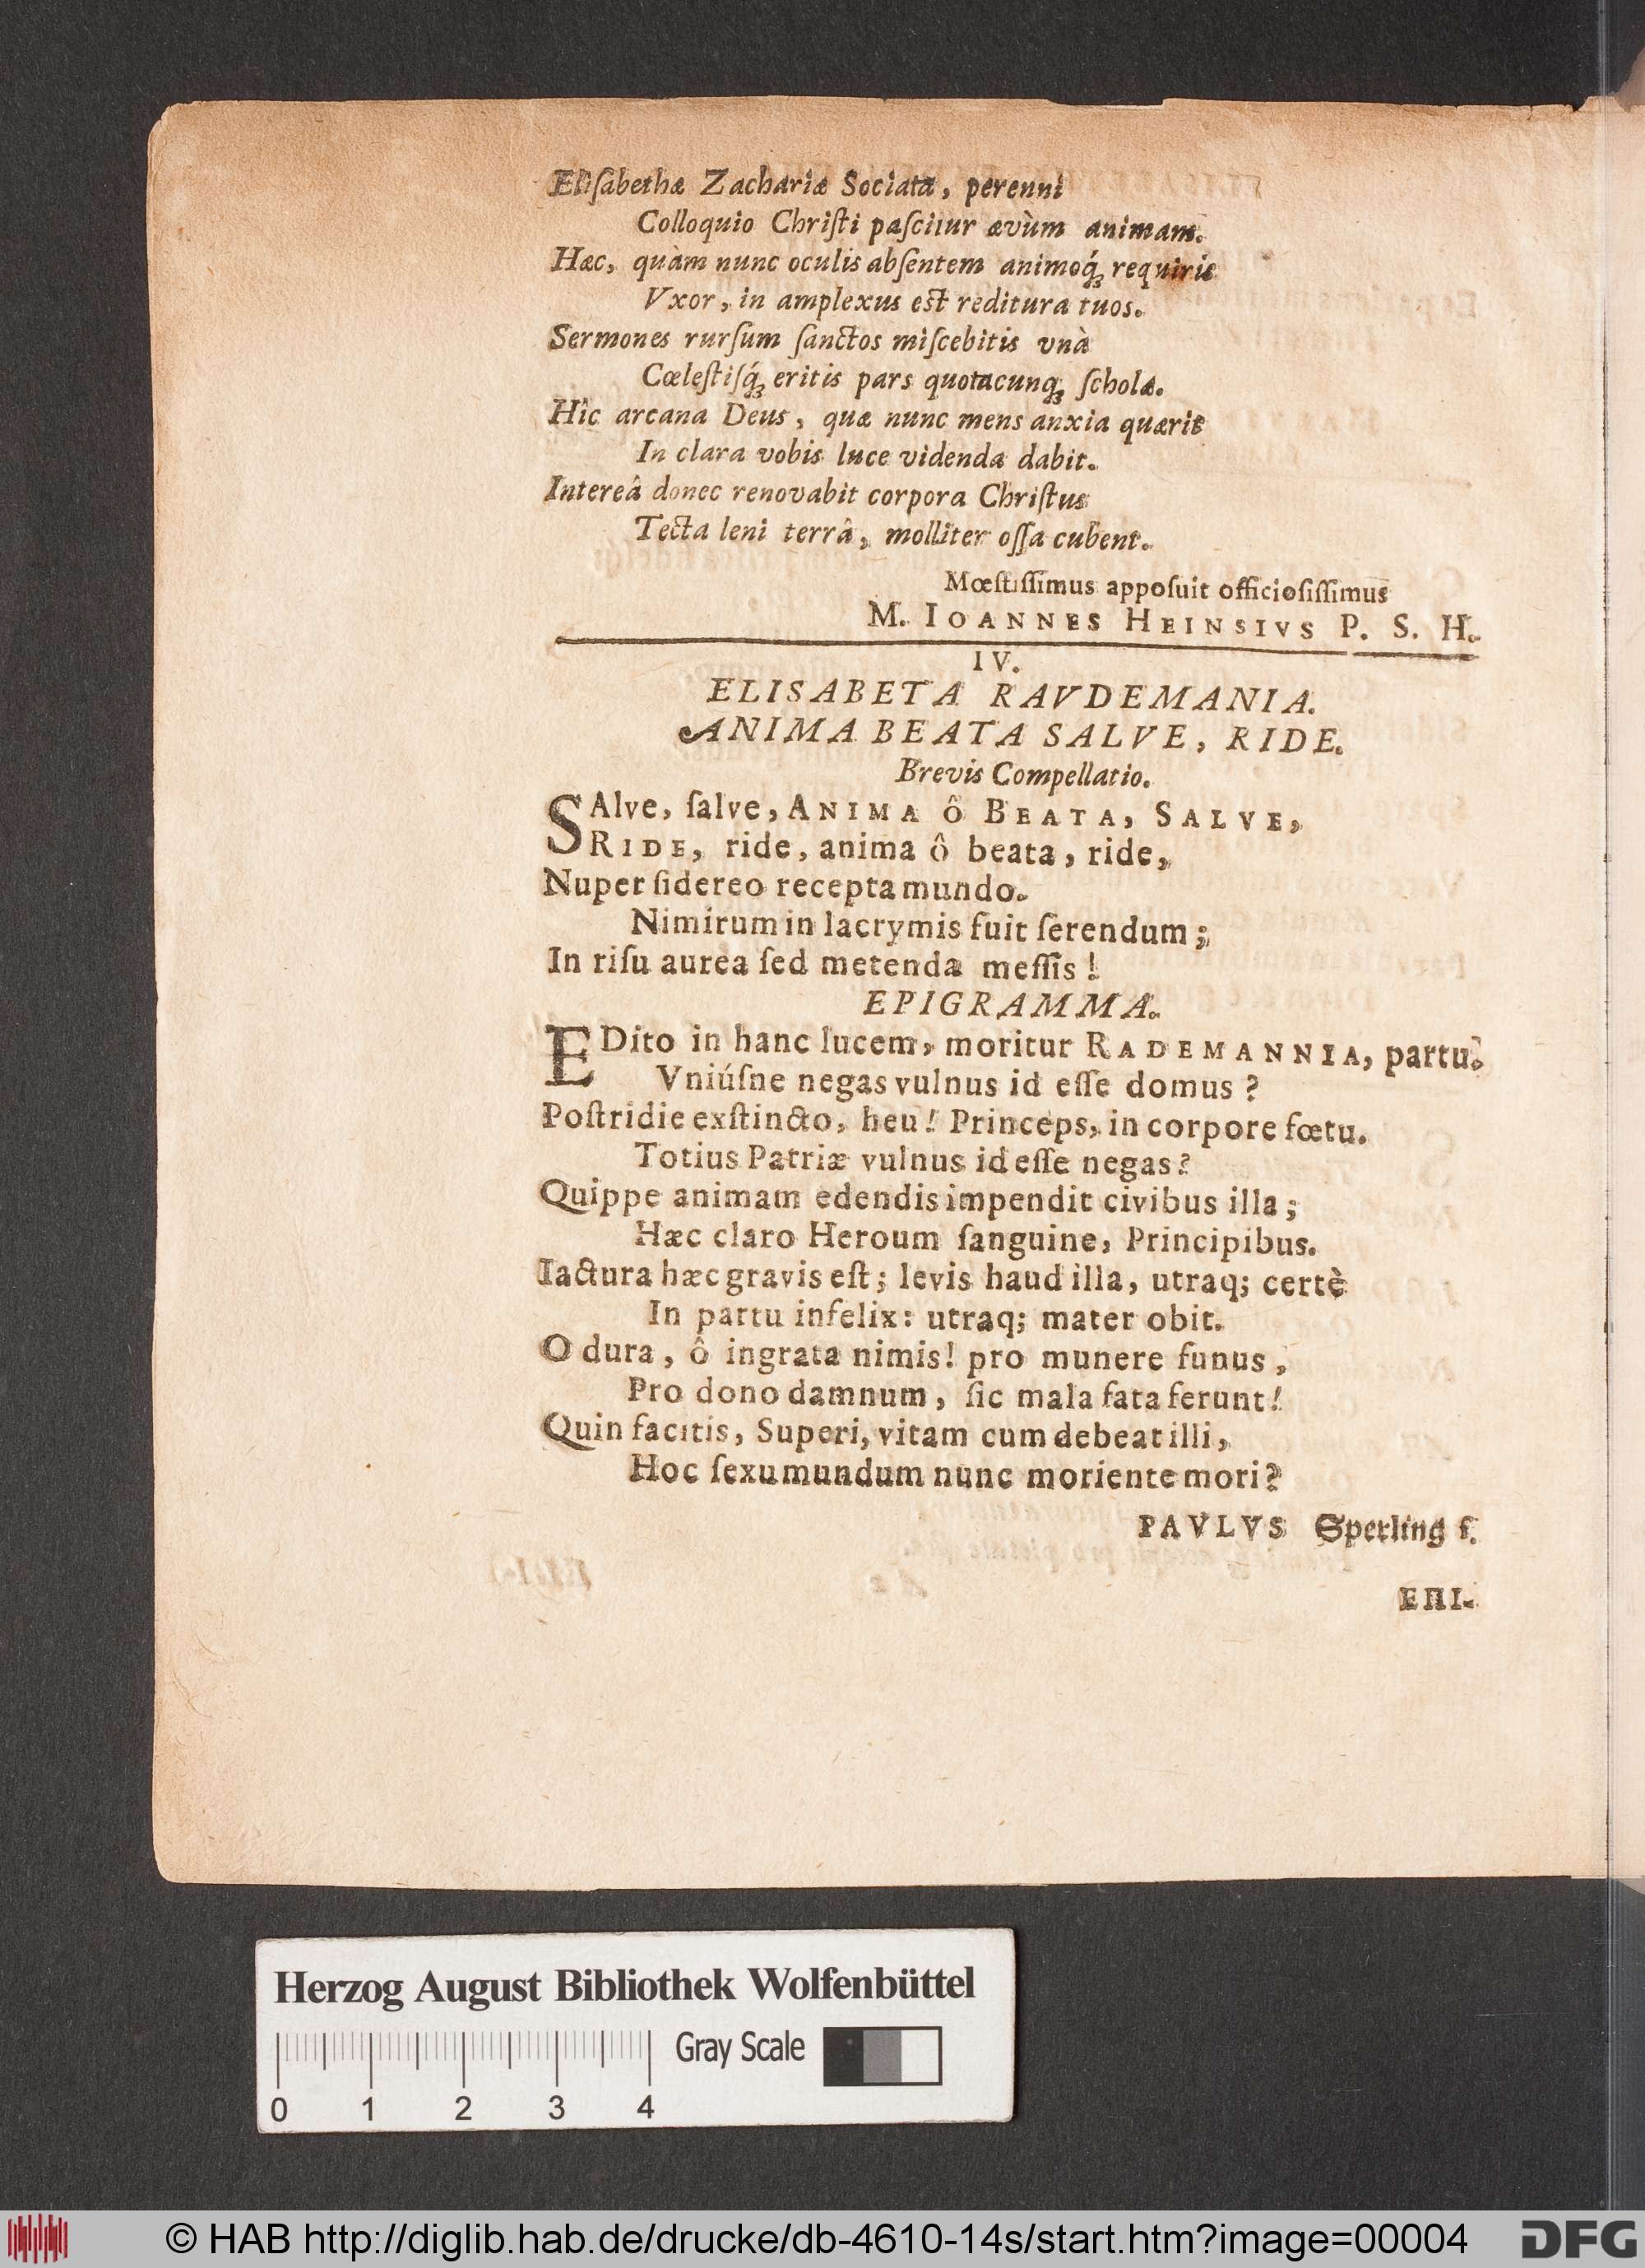 Eliſabethæ Zachariæ Sociata, perenni
Colloquio Chriſti paſcitur ævùm animam.
Hæc, quàm nunc oculis abſentem animoq́ꝫ requiris
Vxor, in amplexus est reditura tuos.
Sermones rurſum ſanctos miſcebitis vnà
Cœleſtiſq́ꝫ eritis pars quotacunqꝫ ſcholæ.
Hîc arcana Deus, quæ nunc mens anxia quærit
In clara vobis luce videnda dabit.
Intereâ donec renovabit corpora Chriſtus
Tecta leni terrâ, molliter oſſa cubent.
Mœſtiſſimus appoſuit officioſiſſimus
M. IOANNES HEINSIVS P. S. H.
IV.
ELISABETA RAVDEMANIA.
ANIMA BEATA SALVE, RIDE.
Brevis Compellatio.
SAlve, ſalve, ANIMA ô BEATA, SALVE,
RIDE, ride, anima ô beata, ride,
Nuper ſidereo recepta mundo.
Nimirum in lacrymis fuit ſerendum;
In riſu aurea ſed metenda meſſis!
EPIGRAMMA.
EDito in hanc lucem, moritur RADEMANNIA, partu.
Vniúſne negas vulnus id eſſe domus?
Poſtridie exſtincto, heu! Princeps, in corpore fœtu.
Totius Patriæ vulnus id eſſe negas?
Quippe animam edendis impendit civibus illa;
Hæc claro Heroum ſanguine, Principibus.
Iactura hæc gravis eſt; levis haud illa, utraq; certè
In partu infelix: utraq; mater obit.
O dura, ô ingrata nimis! pro munere funus,
Pro dono damnum, ſic mala fata ferunt!
Quin facitis, Superi, vitam cum debeat illi,
Hoc ſexu mundum nunc moriente mori?
PAVLVS Sperling f.
ΕΠΙ-
Herzog August Bibliothek Wolfenbüttel
Gray Scale
0 1 2 3 4
© HAB http://diglib.hab.de/drucke/db-4610-14s/start.htm?image=00004
DFG